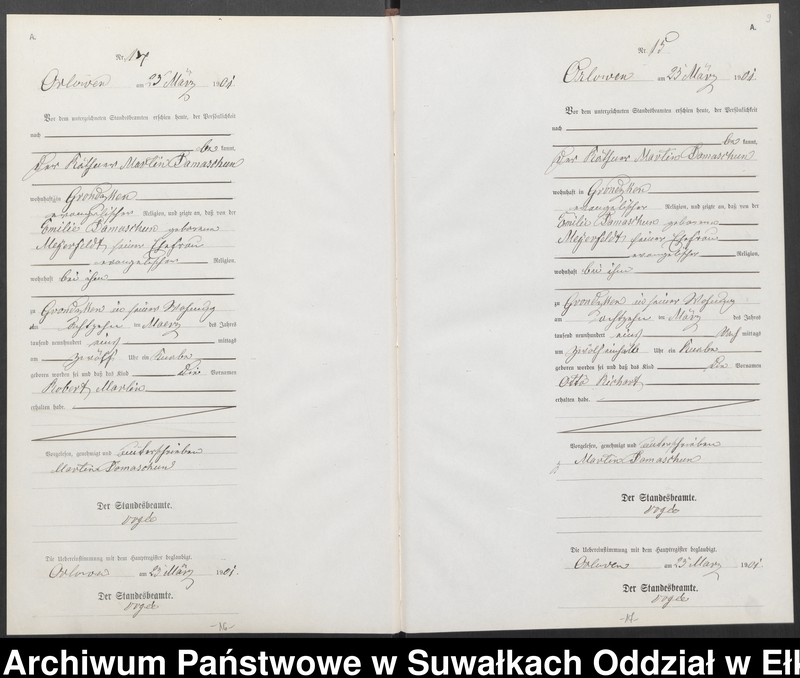 A.
Nr. 14
Orlowen am 23 März 1901.
Vor dem unterzeichneten Standesbeamten erschien heute, der Persönlichkeit
nach
be kannt,
Der Käthner Martin Damaschun
wohnhaft in Grondzken
evangelischer Religion, und zeigte an, daß von der
Emilie Damaschun geborenen
Meyerfeldt seiner Ehefrau
evangelischer Religion,
wohnhaft bei ihm
zu Grondzken in seiner Wohnung
am achtzehn ten Maerz des Jahres
tausend neunhundert eins mittags
um zwölf Uhr ein Knabe
geboren worden sei und daß das Kind die Vornamen
Robert Martin
erhalten habe.
Vorgelesen, genehmigt und unterschrieben
Martin Domaschun
Der Standesbeamte.
Vogde
Die Uebereinstimmung mit dem Hauptregister beglaubigt.
Orlowen am 23 März 1901.
Der Standesbeamte.
Vogde
-16-
A.
Nr. 15
Orlowen am 23 März 1901.
Vor dem unterzeichneten Standesbeamten erschien heute, der Persönlichkeit
nach
be kannt,
Der Käthner Martin Damaschun
wohnhaft in Grondzken
evangelischer Religion, und zeigte an, daß von der
Emilie Damaschun geborenen
Meyerfeldt seiner Ehefrau
evangelischer Religion,
wohnhaft bei ihm
zu Grondzken in seiner Wohnung
am achtzehn ten März des Jahres
tausend neunhundert eins Nach mittags
um zwölfeinhalb Uhr ein Knabe
geboren worden sei und daß das Kind die Vornamen
Otto Richart
erhalten habe.
Vorgelesen, genehmigt und unterschrieben
Martin Damaschun
Der Standesbeamte.
Vogde
Die Uebereinstimmung mit dem Hauptregister beglaubigt.
Orlowen am 23 März 1901.
Der Standesbeamte.
Vogde
-17-
Archiwum Państwowe w Suwałkach Oddział w Ełk